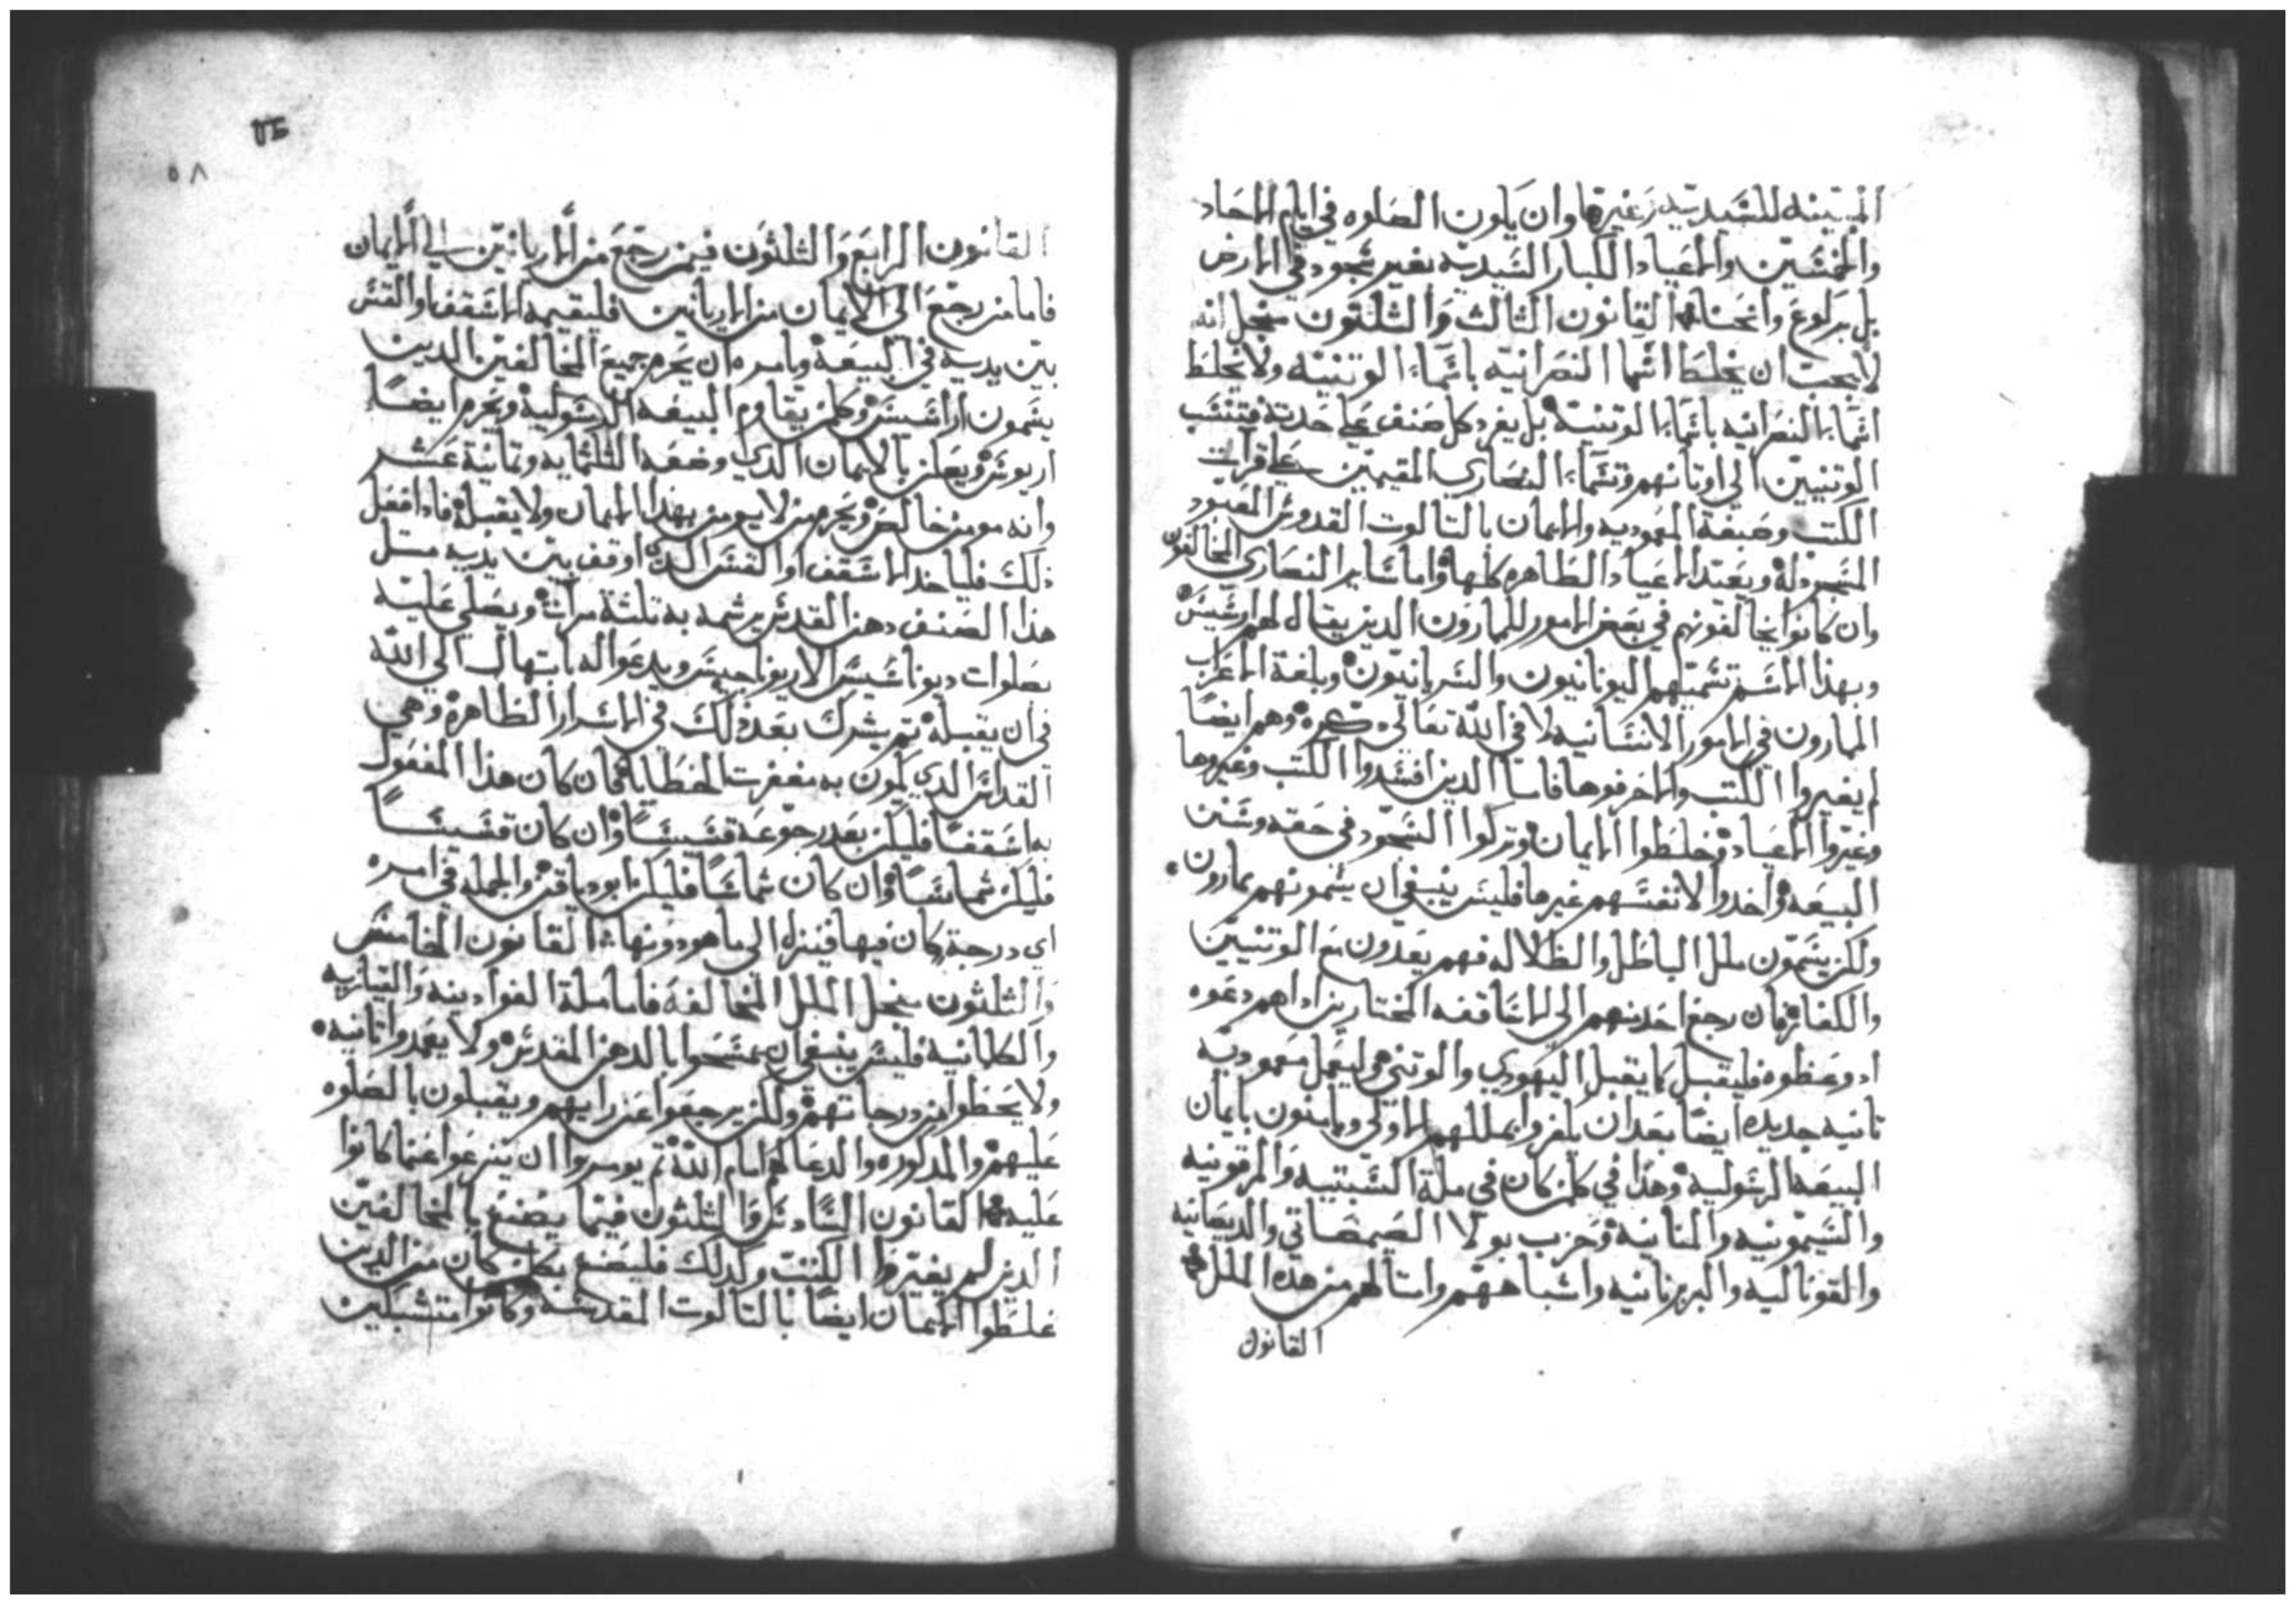 المبينه للسيديه وغيرها وان يكون الصلوه في ايام الاحاد
والخمسين والاعياد الكبار السيديه بغير سجود في الارض
بل بركوع وانحنا القانون الثالث والثلثون من اجل انه
لا يجب ان يخلط اسما النصرانيه باسماء الوتنيه ولا يخلط
اسماء النصرانيه باسماء الوتنيه بل يفرد كل صنف علي حدته فتنسب
الوتنيين الي اوتانهم وتسماء النصاري المقيمين علي قرات
الكتب وصبغة المعموديه والايمان بالتالوت القدوس المعبود
المسجود له وبعتد الاعياد الطاهره كلها واما سائر النصاري المخالفون
وان كانوا يخالفونهم في بعض الامور للمارون الدين يقال لهم ارسيس
وبهذا الاسم تسميهم اليونانيون والسريانيون وبلغة الاعراب
المارون في الامور الانسانيه لا في الله تعالي دكره وهم ايضا
لم يغيروا الكتب ولا حرفوها فاما الدين افسدوا الكتب وغيروها
وغيروا الاعياد وخلطوا الايمان وتركوا السجود في حقه وسنن
البيعه واخدوا لانفسهم غيرها فليس ينبغي ان يسمونهم بمارون
ولكن يسمون ملل الباطل والظلاله فهم يعدون مع الوتنيين
والكفار فان رجع احد منهم الي الاساقفه المختارين اداهم دعوه
او وعظوه فليقبل كما يقبل اليهودي والوتني وليعمل معموديه
تانيه جديده ايضا بعد ان يكفروا بمللهم الاولي ويامنون بايمان
البيعه الرسوليه وهدا في كلمن كان في ملة السبتيه والمرقونيه
والسيمونيه والمنانيه وحزب بولا الصيمصاتي والديصانيه
والقوتاليه والبربرنانيه واشباههم وامتالهم من هده الملل
القانون
٥٨
القانون الرابع والثلثون فيمن رجع من الاريانين الي الايمان
فاما من رجع الي الايمان من الاريانين فليقيمه الاسقف او القس
بين يديه في البيعه ويامره ان يحرم جميع المخالفين الدين
يسمون اراسيس وكلمن يقاوم البيعه الرسوليه ويحرم ايضا
اريوس ويعلن بالايمان الدي وضعه الثلثمايه وتمانية عشر
وانه مومن خالص ويحرم من لا يومن بهدا الايمان ولا يقبله فادا فعل
دلك فلياخد الاسقف او القس الدي اوقف بين يديه متل
هدا الصنف دهن القدس يرشمه به تلتة مرات ويصلي عليه
بصلوات ديوناسيس الاريوباجيس ويدعوا له بابتهال الي الله
في ان يقبله تم يشرك بعد دلك في الاسرار الطاهره وهي
القداس الدي يكون به مغفرت الخطايا فان كان هدا المفعول
به اسقفا فليكن بعد رجوعه قسيسا وان كان قسيسا
فليكن شماسا وان كان شماسا فليكن ابودياقن والجمله في امره
اي درجة كان فيها فينزل الي ما هو دونها القانون الخامس
والثلثون من اجل الملل المخالفه فاما ملة الفوادينه والقتاريه
والكلمانيه فليس ينبغي ان يمسحوا بالدهن المقدس ولا يعمدوا تانيه
ولا يحطوا من درجاتهم ولكن يرجعوا عن رايهم ويقبلون بالصلوه
عليهم والمدكوره والدعا لهم امام الله تم يومروا ان ينزعوا عما كانوا
عليه القانون السادس والثلثون فيما يصنع بالمخالفين
الدين لم يغيروا الكتب وكدلك فليصنع بكلمن كان من الدين
غلطوا الايمان ايضا بالتالوت المقدس وكانوا متشبكين